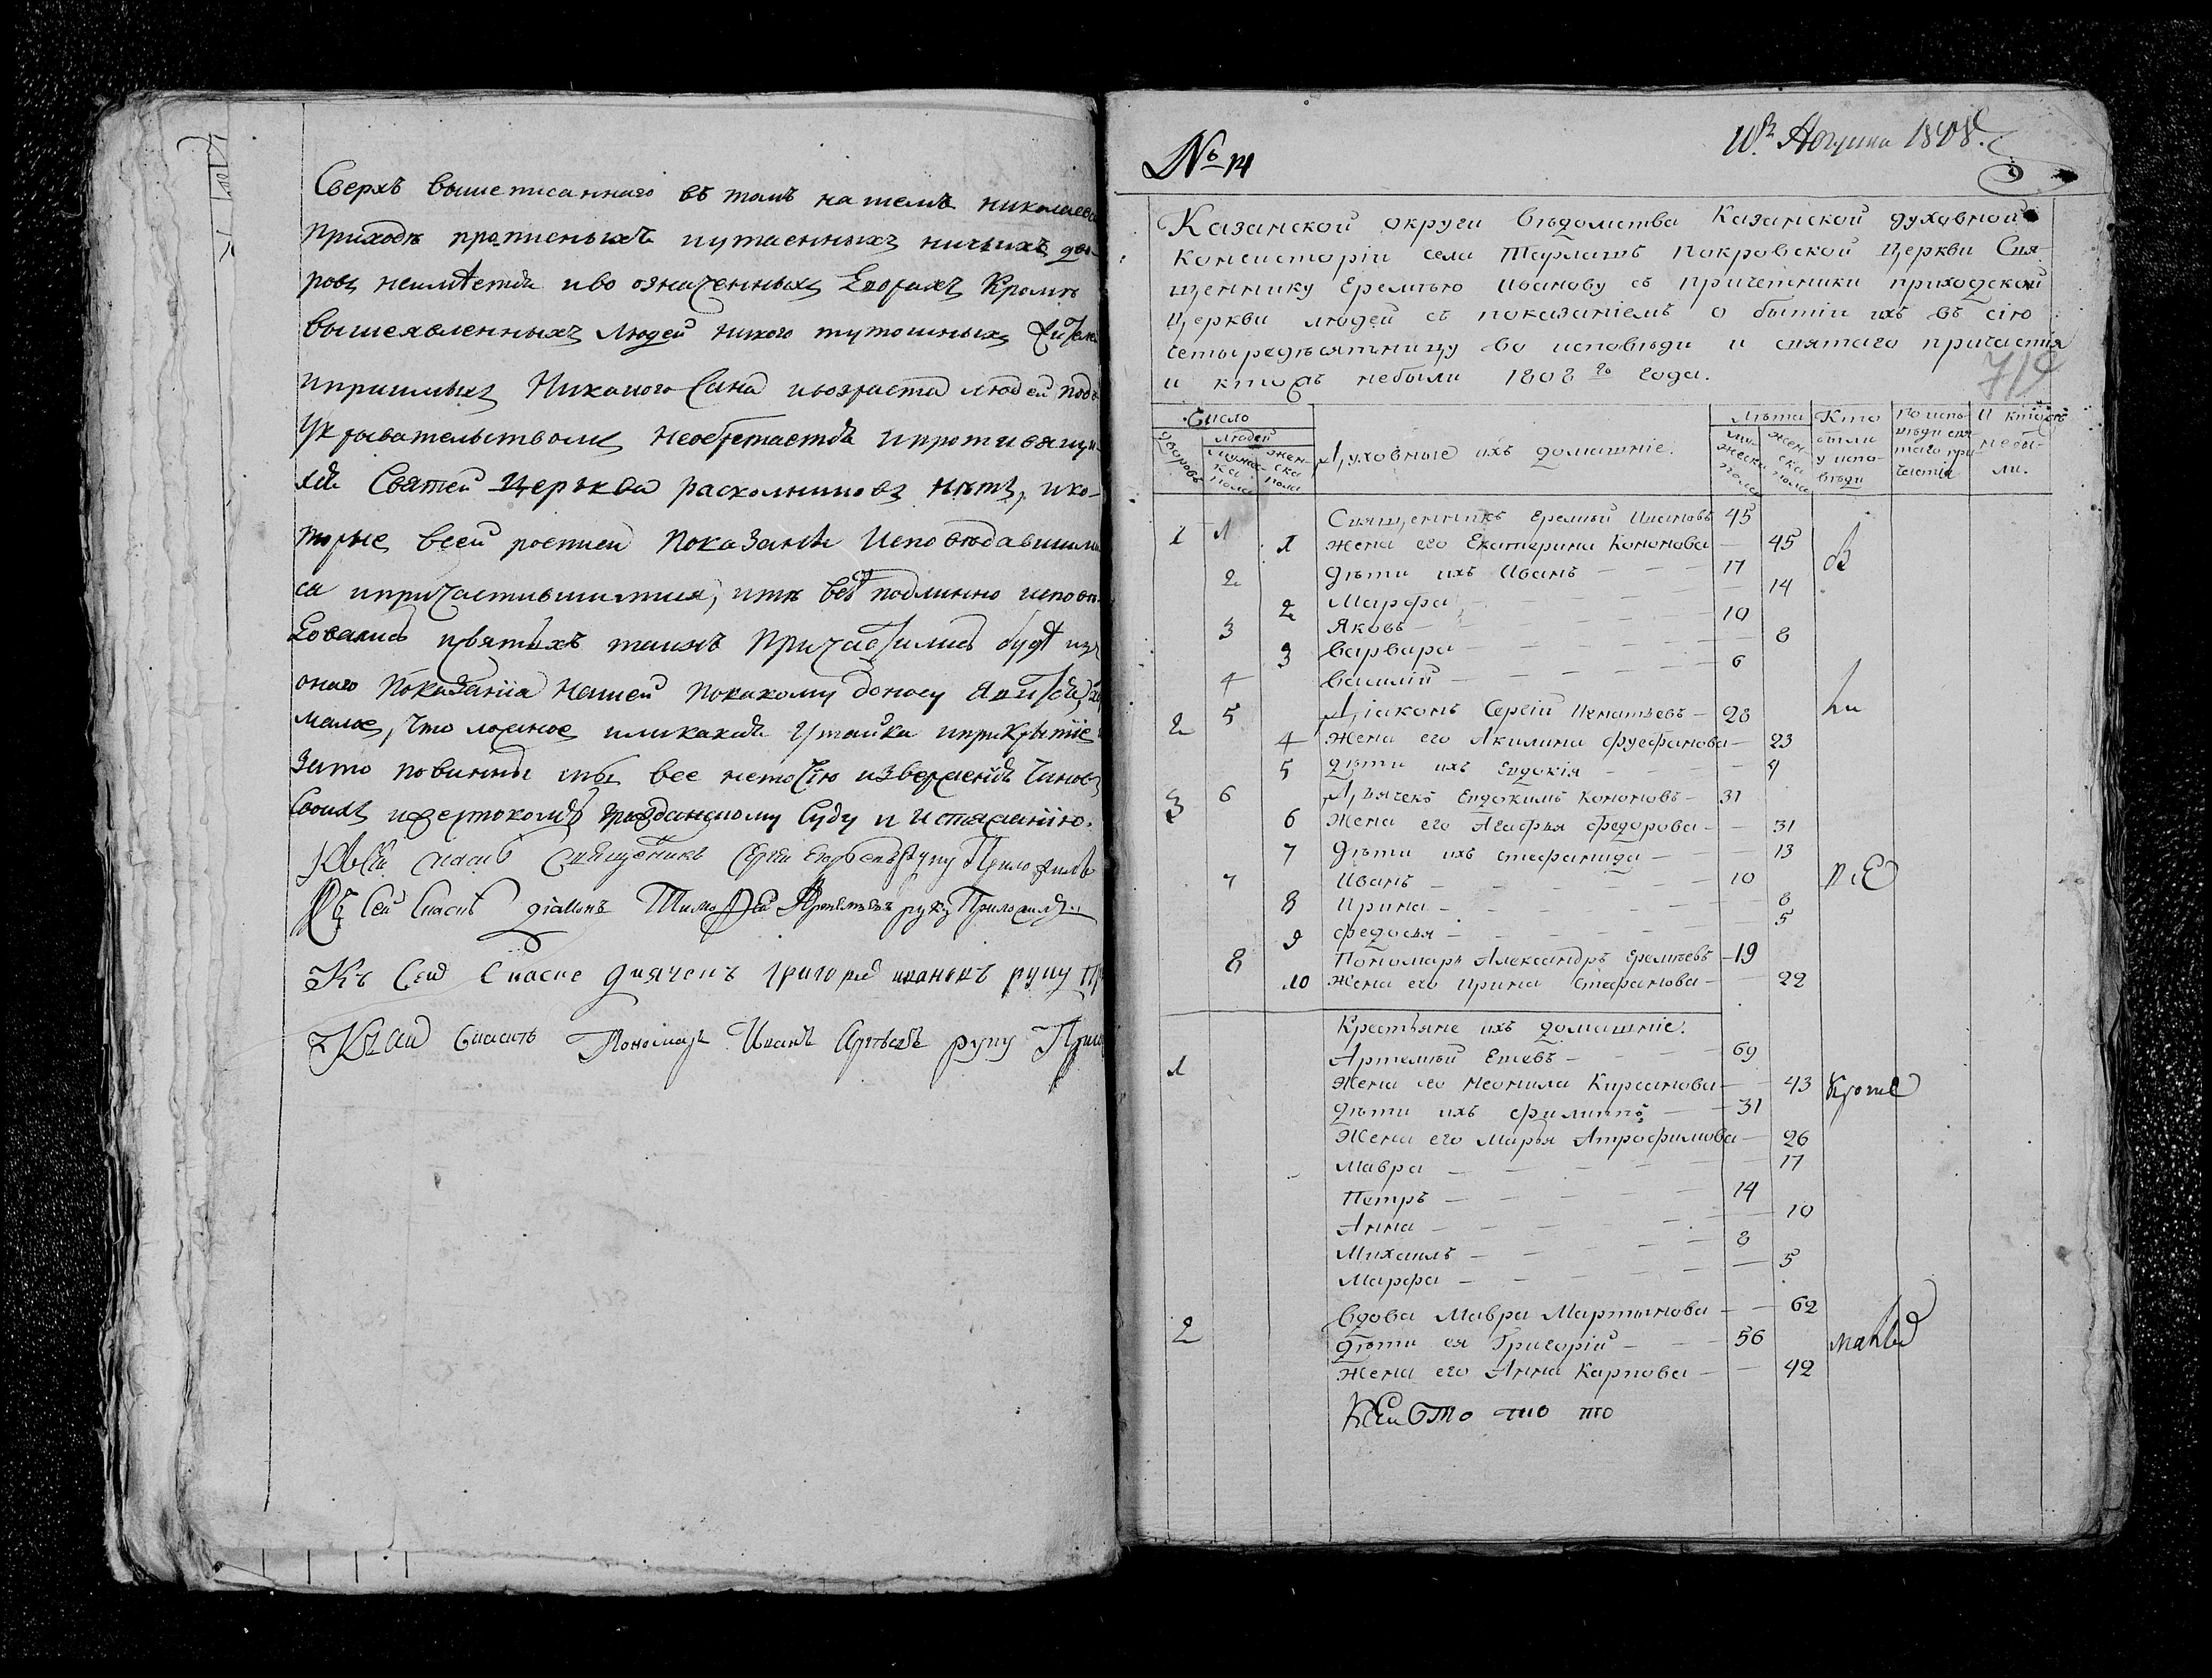 Сверхъ вышеписаннаго въ томъ нашемъ николаев
приходѣ прописныхъ иутаенныхъ ничьихъ дво-
ровъ неимѣется иво означенныхъ дворахъ Кромѣ
вышеявленныхъ Людей никого тутошныхъ жителе
ипришлыхъ Никакого Сана ивозраста людей подъ
укрывательствомъ необретается ипротивящи-
хся Святей Церькви раскольниковъ нѣтъ, ико-
торые всей росписи показаны Исповѣдавшими
ся ипричастившимися, итѣ всѣ подлинно исповѣ-
довались исвятыхъ таинъ причастились буде изъ
онаго показанія нашей покакому доносу явится, хо
малое, что ложное иликакая утайка иприкрытіе
зато повинны мы все
своихъ гражданскому Суду и истязанію.
Къ Сей Священникъ Сергей руку Приложилъ
Къ Сей діаконъ Тимофей руку Приложилъ
Къ Сей дьячекъ Григорей ивановъ руку
Къ Сей Пономарь Иванъ руку
№ 14
Августа 1808.
Казанской округи вѣдомства Казанской духовной
Консисторіи села Тарлашъ Покровской Церкви Свя-
щеннику Еремѣю Иванову съ причетники приходской
Церкви людей съ показаніемъ о бытіи ихъ въ сію
четыредѣсятницу во исповѣди и святаго причастія
и ктожъ небыли 1808 го Года.
719
Число Лѣта Кто По испо- И ктожъ
дворовъ людей Духовные ихъ домашніе. были вѣди свя- небы-
мужеска пола женска пола у испо- таго при- ли.
вѣди частія
1 1 Священникъ Еремѣй Ивановъ 45
1 жена его Екатерина Кононова — 45 В
2 дѣти ихъ Иванъ — — — 17
2 Марфа — 14
3 Яковъ — 10
3 Варвара — 8
4 Василій — 6
2 5 Діаконъ Сергій Игнатьевъ — 28
4 жена его Акилина — 23
5 дѣти ихъ Евдокія — 4
3 6 Дьячекъ Евдокимъ Кононовъ — 31
6 жена его Агафья Федорова — 31
7 дѣти ихъ Стефанида — 13
7 Иванъ — 10
8 Ирина — 8
9 Федосья — 5
8 Пономарь Александръ Еремѣевъ — 19
10 жена его Ирина Стефанова — 22
Крестьяне ихъ домашніе.
1 Артемій — 69
жена его Неонила Кирсанова — 43
дѣти ихъ Филиппъ — 31
Жена его Марья Атрофимова — 26
Мавра — 17
Петръ — 14
Анна — 10
Михаилъ — 8
Марфа — 5
Вдова Мавра Мартынова — 62
2 дѣти ея Григорій — 56
жена его Анна Карпова — 42